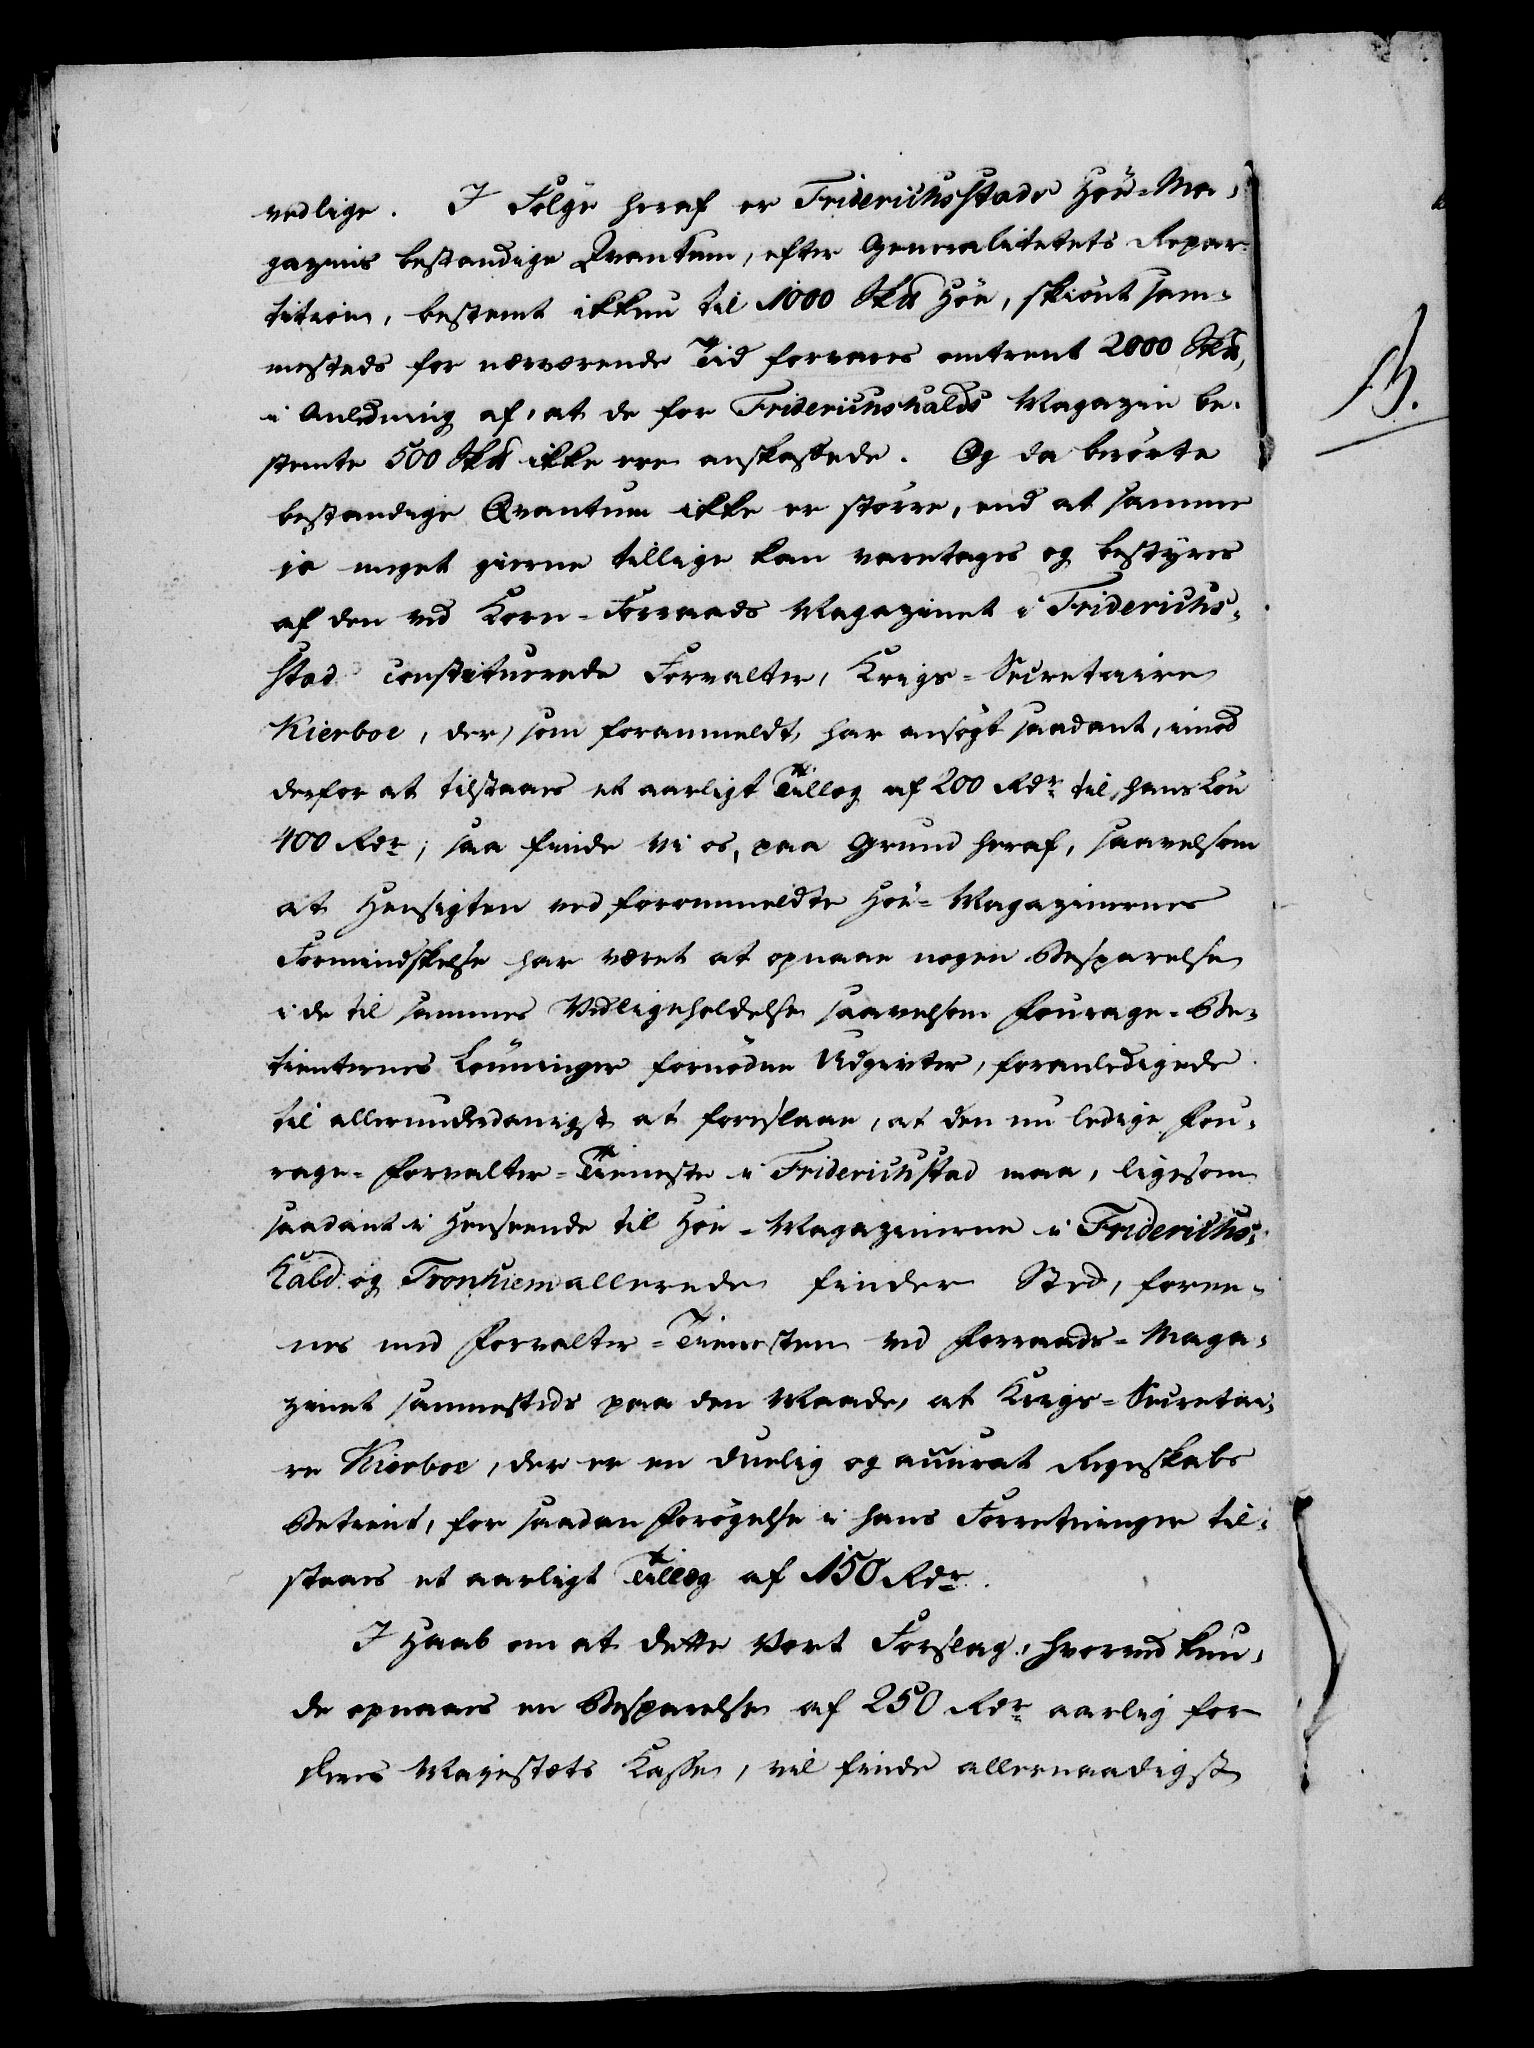 vedlige. I Følge heraf er Friderichsstads Höe-Ma-
gazins bestandige Qvantum, efter Generalitetets Repar-
tition, bestemt ikkun til 1000 Sk℔ Höe, skiönt sam-
mesteds for nærværende Tid forvares omtrent 2000 Sk℔,
i Anledning af, at de for Friderichshalds Magazin be-
stemte 500 Sk℔ ikke ere anskaffede. Og da berörte
bestandige Qvantum ikke er större, end at samme
jo meget gierne tillige kan varetages og bestyres
af den ved Korn-Forraads Magazinet i Friderichs-
stad constituerede Forvalter, Krigs-Secretaire
Kierboe, der, som foranmeldt, har ansögt saadant, imod
derfor at tilstaaes et aarligt Tillæg af 200 Rdr til hans Lön
400 Rdr; saa finde vi os, paa Grund heraf, saavelsom
at Hensigten ved foranmeldte Höe-Magazinernes
Formindskelse har været at opnaae nogen Besparelse
i de til sammes Vedligeholdelse saavelsom Fourage-Be-
tienternes Lönninger fornödne Udgivter, foranledigede
til allerunderdanigst at foreslaae, at den nu ledige Fou-
rage-Forvalter-Tieneste i Friderichstad maa, ligesom
saadant i Henseende til Höe-Magazinerne i Friderichs-
hald og Tronhiem allerede finder Sted, foree-
nes med Forvalter-Tienesten ved Forraads-Maga-
zinet sammesteds paa den Maade, at Krigs-Secretai-
re Kierboe, der er en duelig og accurat Regnskabs
Betient, for saadan Forögelse i hans Forretninger til-
staaes et aarligt Tillæg af 150 Rdr.
I Haab om at dette Vort Forslag, hvorved kun-
de opnaaes en Besparelse af 250 Rdr aarlig for
Deres Majestæts Kasse, vil finde allernaadigst